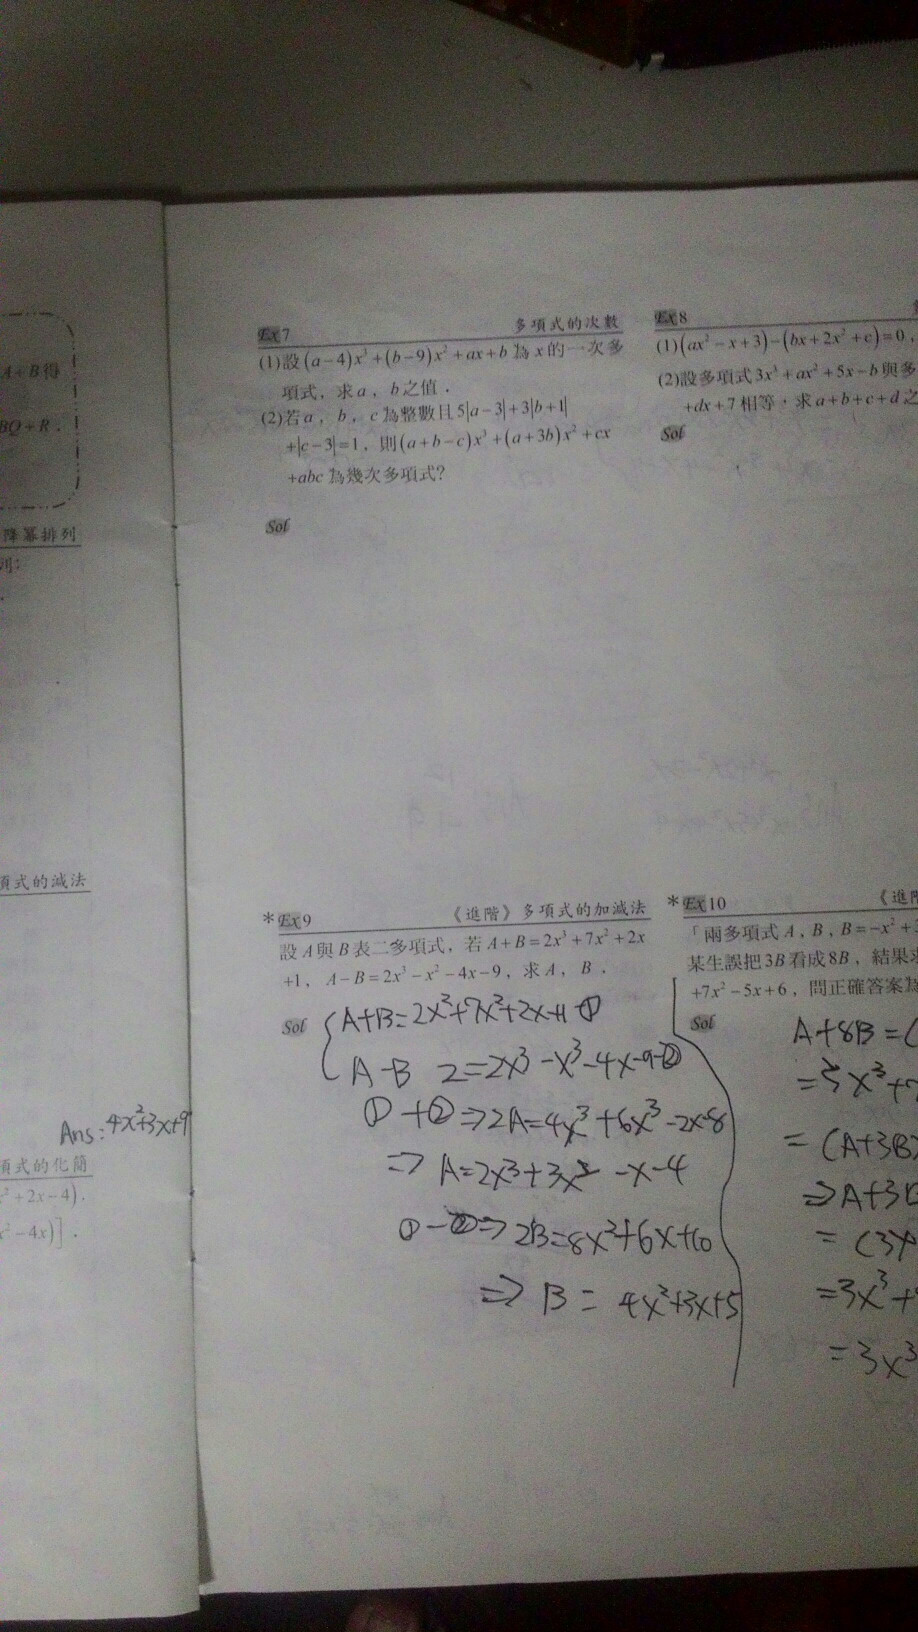 A+B得
BQ+R．
降冪排列
列：
項式的減法
Ans：4x²+3x+9
項式的化簡
x²+2x-4)．
x²-4x)]．
Ex 7 多項式的次數
(1)設(a-4)x³+(b-9)x²+ax+b為x的一次多
項式，求a，b之值．
(2)若a，b，c為整數且5|a-3|+3|b+1|
+|c-3|=1，則(a+b-c)x³+(a+3b)x²+cx
+abc為幾次多項式?
Sol
Ex 8
(1)(ax²-x+3)-(bx+2x²+c)=0，
(2)設多項式3x³+ax²+5x-b與多
+dx+7相等，求a+b+c+d之
Sol
*Ex 9 《進階》多項式的加減法
設A與B表二多項式，若A+B=2x³+7x²+2x
+1，A-B=2x³-x²-4x-9，求A，B．
Sol
A+B=2x³+7x²+2x+1-①
A-B 2=2x³-x³-4x-9-②
①+②⇒2A=4x³+6x³-2x-8
⇒A=2x³+3x²-x-4
①-②⇒2B=8x²+6x+10
⇒B=4x²+3x+5
*Ex 10 《進階
「兩多項式A，B，B=-x²+
某生誤把3B看成8B，結果求
+7x²-5x+6，問正確答案為
Sol
A+8B=(
=3x³+7
=(A+3B)
⇒A+3B
=(3x
=3x³+
=3x³